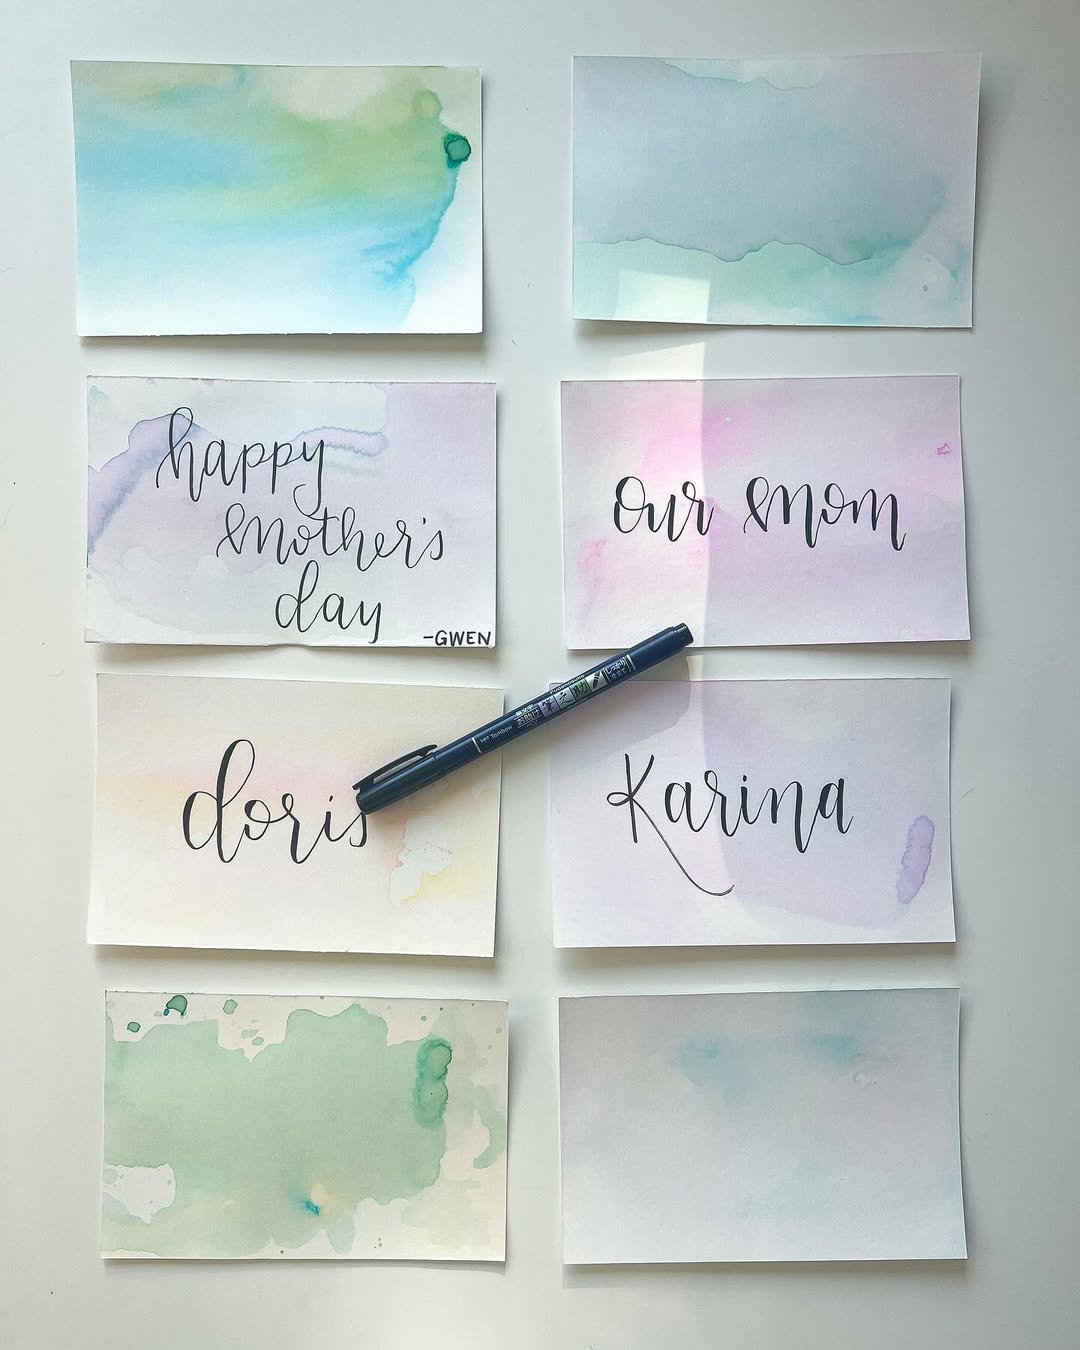 happy
mother's
day
-GWEN
our mom
doris
Karina
Tombow